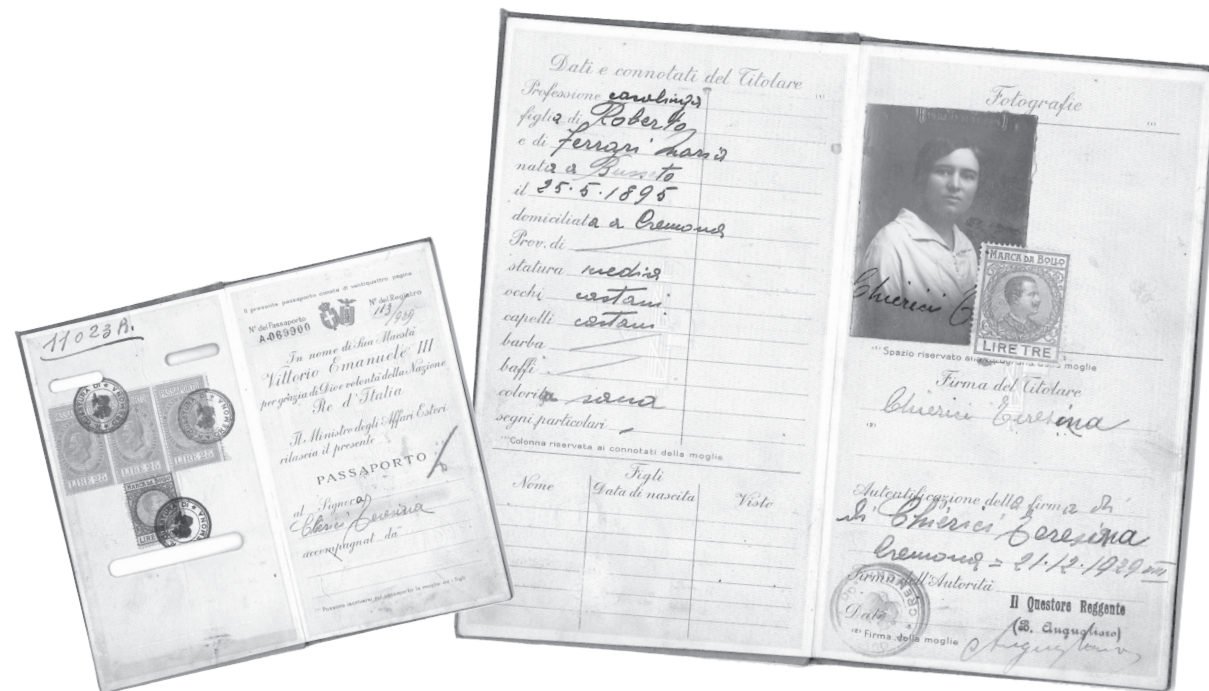 11023 A.
PASSAPORTO
LIRE 25
LIRE 25
LIRE 25
MARCA DA BOLLO
LIRE
Il presente passaporto consta di ventiquattro pagine
N° del Passaporto
A-069900
N° del Registro
113/929
In nome di Sua Maestà
Vittorio Emanuele III
per grazia di Dio e volontà della Nazione
Re d'Italia
Il Ministro degli Affari Esteri
rilascia il presente
PASSAPORTO
al Signora
Chierici Teresina
accompagnat da
Dati e connotati del Titolare
Professione casalinga
figlia di Roberto
e di Ferrari Maria
nata a Busseto
il 25·5·1895
domiciliata a Cremona
Prov. di
statura media
occhi castani
capelli castani
barba
baffi
colorito sana
segni particolari
Colonna riservata ai connotati della moglie
Figli
Nome Data di nascita Visto
Fotografie
Chierici
MARCA DA BOLLO
LIRE TRE
Spazio riservato alla moglie
Firma del Titolare
Chierici Teresina
Autentificazione della firma di
di Chierici Teresina
Cremona = 21·12·1929 VIII
Firma dell'Autorità
Il Questore Reggente
Data
(S. Augugliaro)
Firma della moglie